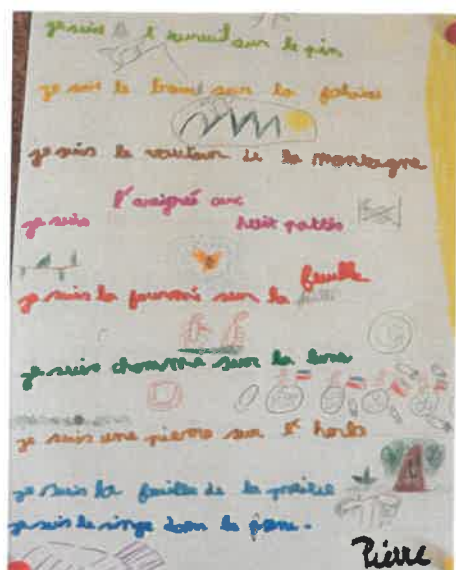 je suis l'écureuil sur le pin
je suis le sur la falaise
je suis le vautour de la montagne
je suis l'areigné avec huit pattes
je suis la fourmi sur la feuille
je suis chomme sur la lune
je suis une pierre sur l'herbe
je suis la feuille de la prairie
je suis le singe dans le parc.
Pierre